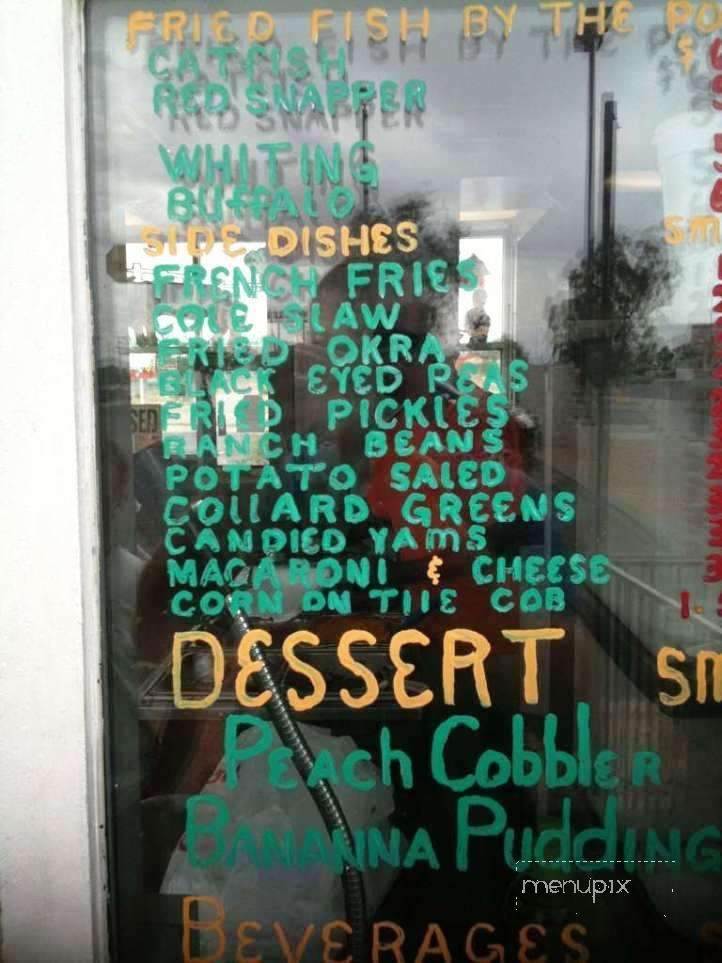 FRIED FISH BY THE PO
CATFISH $
RED SNAPPER
WHITING
BUFFALO
SIDE DISHES SM
FRENCH FRIES
COLE SLAW
FRIED OKRA
BLACK EYED PEAS
FRIED PICKLES
RANCH BEANS
POTATO SALED
COLLARD GREENS
CANDIED YAMS
MACARONI & CHEESE
CORN ON THE COB 1.
DESSERT SM
PEACH CObblER
BANANNA PUdding
BEVERAGES S
menupix